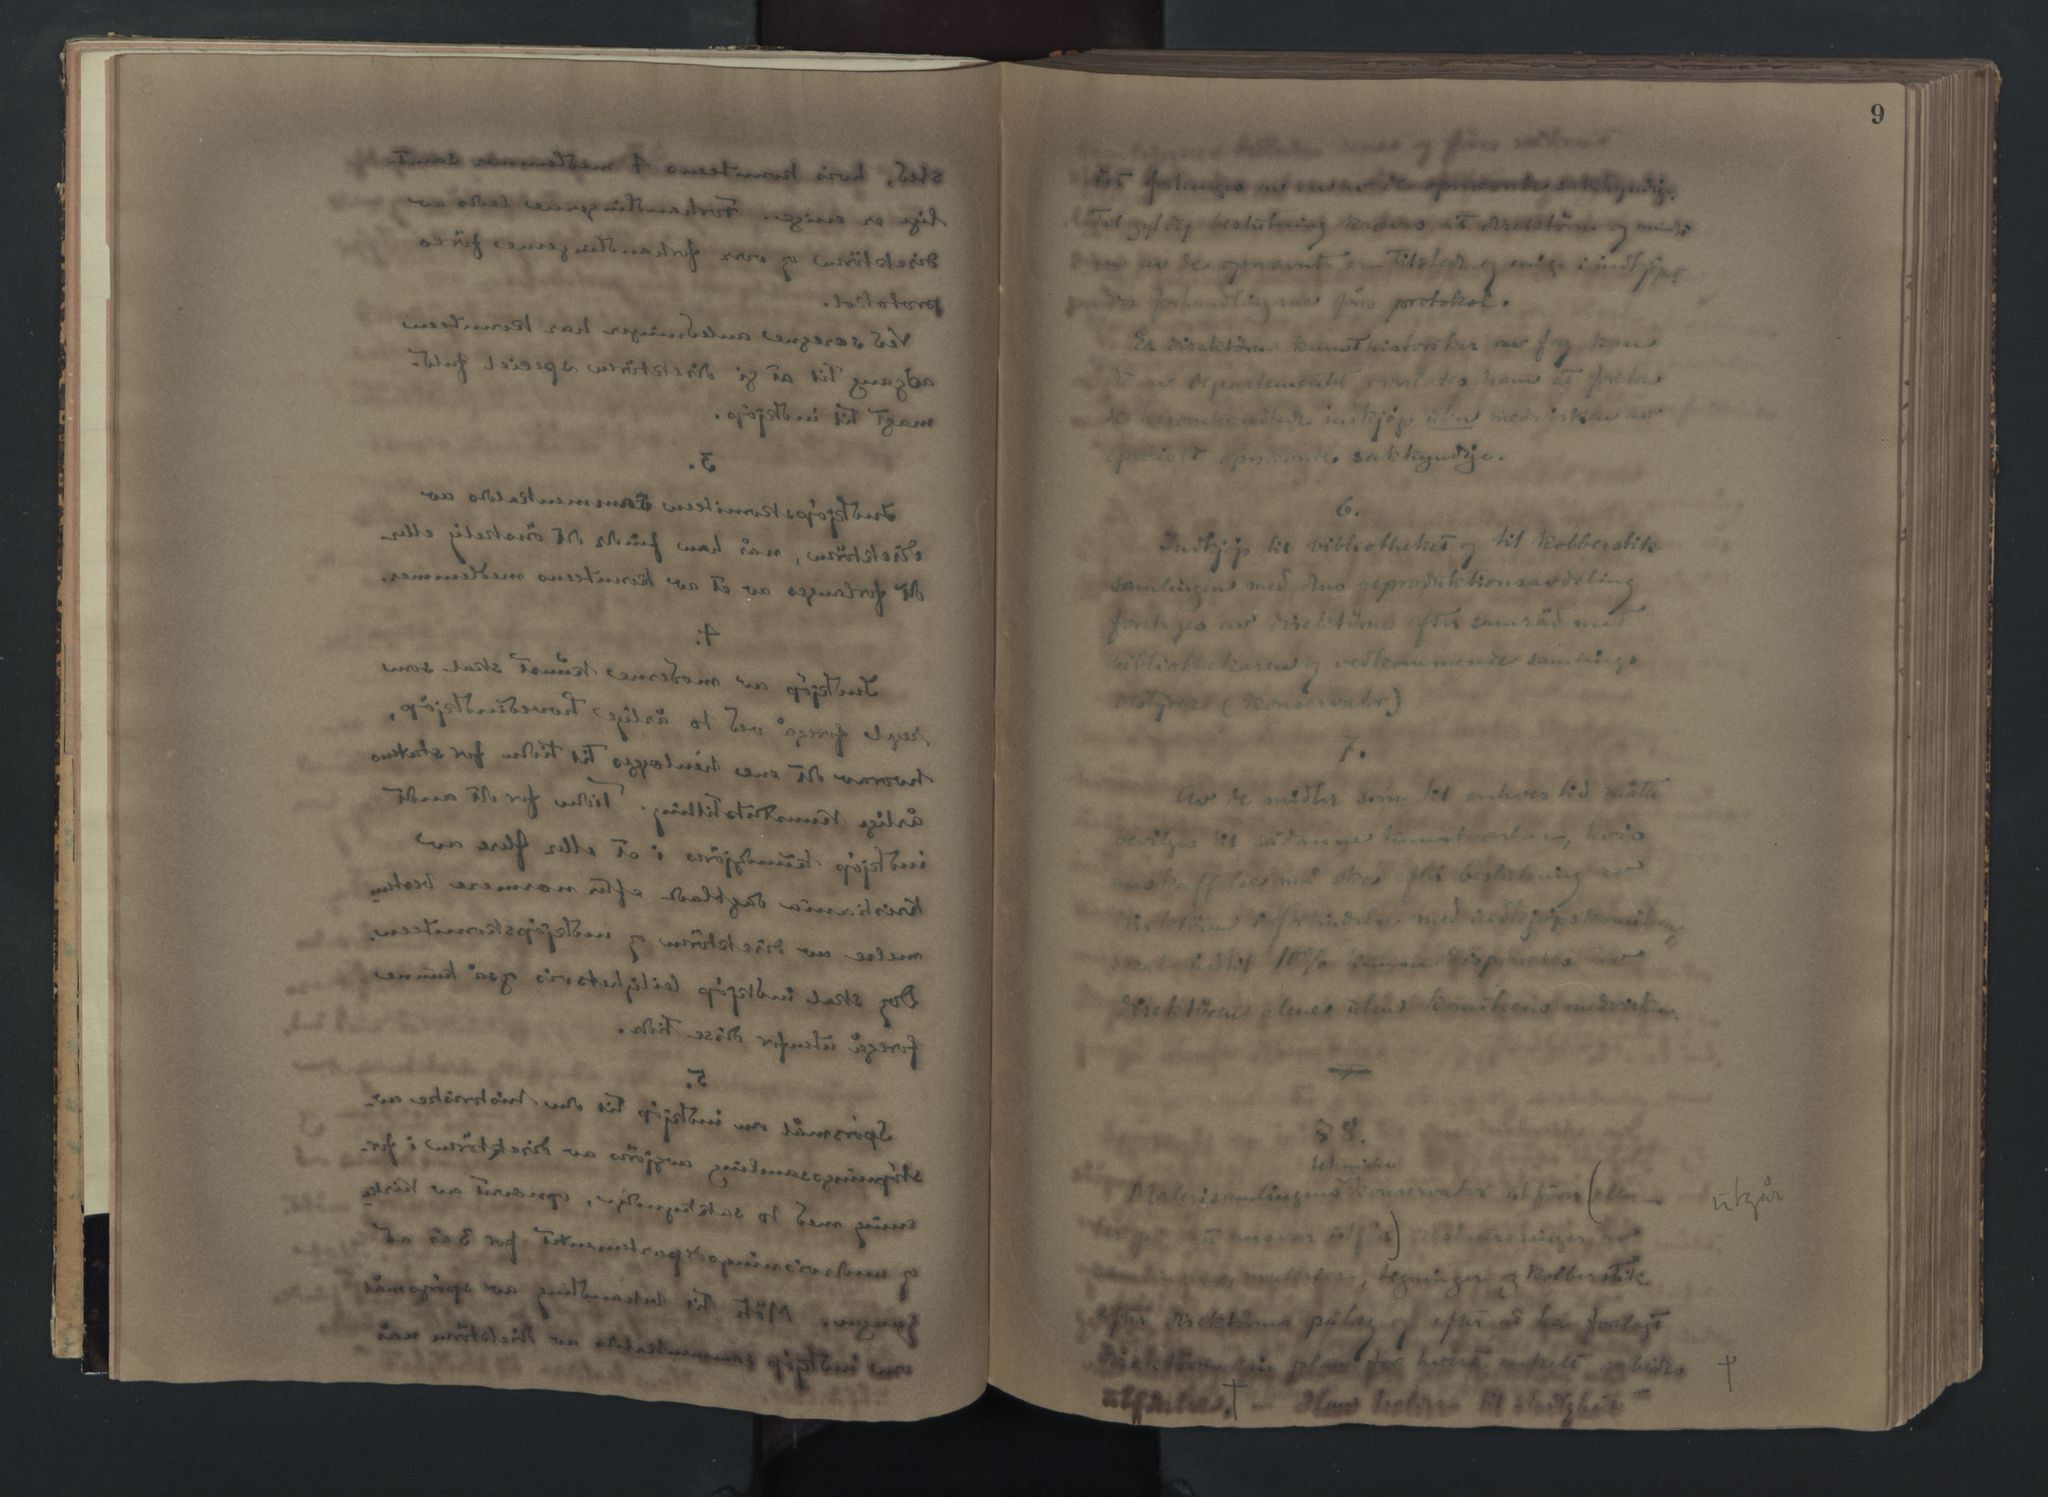 8
sted, hvis komiteens 4 medlemmer samt-
lige er enige. Forhandlingerne ledes av
direktören og over forhandlingerne föres
protokol.
Ved særegne anledninger har komiteen
adgang til at gi direktören speciel fuld-
magt til indkjöp.
3.
Indkjöpskomiteen sammenkaldes av
direktören, når han finder det önskelig eller
det forlanges av et av komiteens medlemmer.
4.
Indkjöp av moderne kunst skal som
regel foregå ved to årlige hovedindkjöp,
hvorav det ene henlægges til tiden for statens
årlige kunstutstilling. Tiden for det andet
indkjöp kundgjöres i et eller flere av
Kristiania dagblade efter nærmere bestem
melse av direktören og indkjöpskomiteen.
Dog skal indkjöp leilighetsvis også kunne
foregå utenfor disse tider.
5.
Spörsmål om indkjöp til den historiske av-
stöpningssamling avgjöres av direktören i for-
ening med to sakkyndige, opnævnt av Kirke
og undervisningsdepartementet for 3 år ad
gangen. Möte til behandling av spörgsmål
om indkjöp sammenkaldes av direktören når
9
det forlanges av en av de opnævnte sakkyndige.
Til gyldig beslutning kræves at direktören og mindst
en av de opnævnte er tilstede og enige i indkjöpet
Over forhandlingerne föres protokol.
Er direktören kunsthistoriker av fag kan
det av departementet overlates ham at foreta
de heromhandlede indkjöp uten medvirken av
specielt opnævnte sakkyndige.
6.
Indkjöp til bibliotheket og til kobberstik
samlingen med dens reproduktionsavdeling
foretages av direktören efter samråd med
bibliothekaren og vedkommende samlings
bestyrer (konservator)
7.
Av de midler som til enhver tid måtte
bevilges til sådanne kunstverker, hvis
anskaffelse må skes efter beslutning av
direktören i forbindelse med indkjöpskomiteen,
skal indtil 10% kunne disponeres av
direktören alene uten komiteens medvirken.
§ 8.
tekniske
Malerisamlingens konservator utförer (eller
ser på sit ansvar utfört) restaureringer av
samlingens malerier, tegninger og kobberstik
efter direktörens pålæg og efter at ha forelagt
direktören sin plan for hvert enkelt arbeides
utförelse. † – Han holder til stadighet
utgår
†